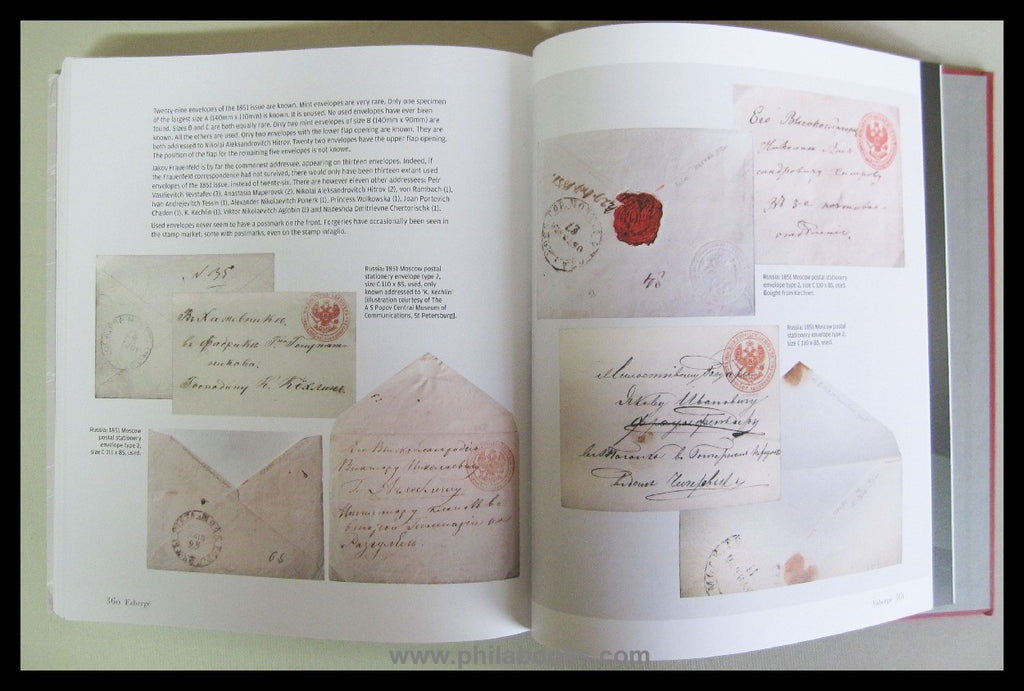 Twenty-nine envelopes of the 1851 issue are known. Mint envelopes are very rare. Only one specimen
of the largest size A (140mm x 110mm) is known. It is unused. No used envelopes have ever been
found. Sizes B and C are both equally rare. Only two mint envelopes of size B (140mm x 90mm) are
known. All the others are used. Only two envelopes with the lower flap opening are known. They are
both addressed to Nikolai Aleksandrovitch Hitrov. Twenty two envelopes have the upper flap opening.
The position of the flap for the remaining five envelopes is not known.
Jakov Frauenfeld is by far the commonest addressee, appearing on thirteen envelopes. Indeed, if
the Frauenfeld correspondence had not survived, there would only have been thirteen extant used
envelopes of the 1851 issue, instead of twenty-six. There are however eleven other addressees: Petr
Vasilevitch Yevstafev (1), Anastasia Maperovsk (2), Nikolai Aleksandrovitch Hitrov (2), von Rambach (1),
Ivan Andrejevitch Tessin (1), Alexander Nikolaevitch Ponerik (1), Princess Wolkowska (1), Joan Portevich
Chaden (1), K. Kechlin (1), Viktor Nikolaevitch Aglobin (1) and Nadeshda Dmitrievne Chertorischk (1).
Used envelopes never seem to have a postmark on the front. Forgeries have occasionally been seen in
the stamp market, some with postmarks, even on the stamp intaglio.
N 135
Russia: 1851 Moscow postal
stationery envelope type 2,
size C 110 x 85, used, only
known addressed to 'K. Kechlin'
(illustration courtesy of The
A S Popov Central Museum of
Communications, St Petersburg).
Господину К. Кёхлинъ
Russia: 1851 Moscow
postal stationery
envelope type 2,
size C 111 x 85, used.
65
Его Высокоблагородію
Виктору Николаевичу
Разгуляе.
360 Fabergé
Его Высокоблагор
Николаю Алек
сандровичу Хитрову
Въ 3е почтовое
отдѣленіе.
48
Russia: 1851 Moscow postal
stationery envelope type 2,
size C 110 x 85, used.
Bought from Kechner.
Russia: 1851 Moscow postal
stationery envelope type 2,
size C 110 x 85, used.
Милостивому Государ
Якову Ивановичу
Фрауенфельдеру
Fabergé 361
www.philabooks.com